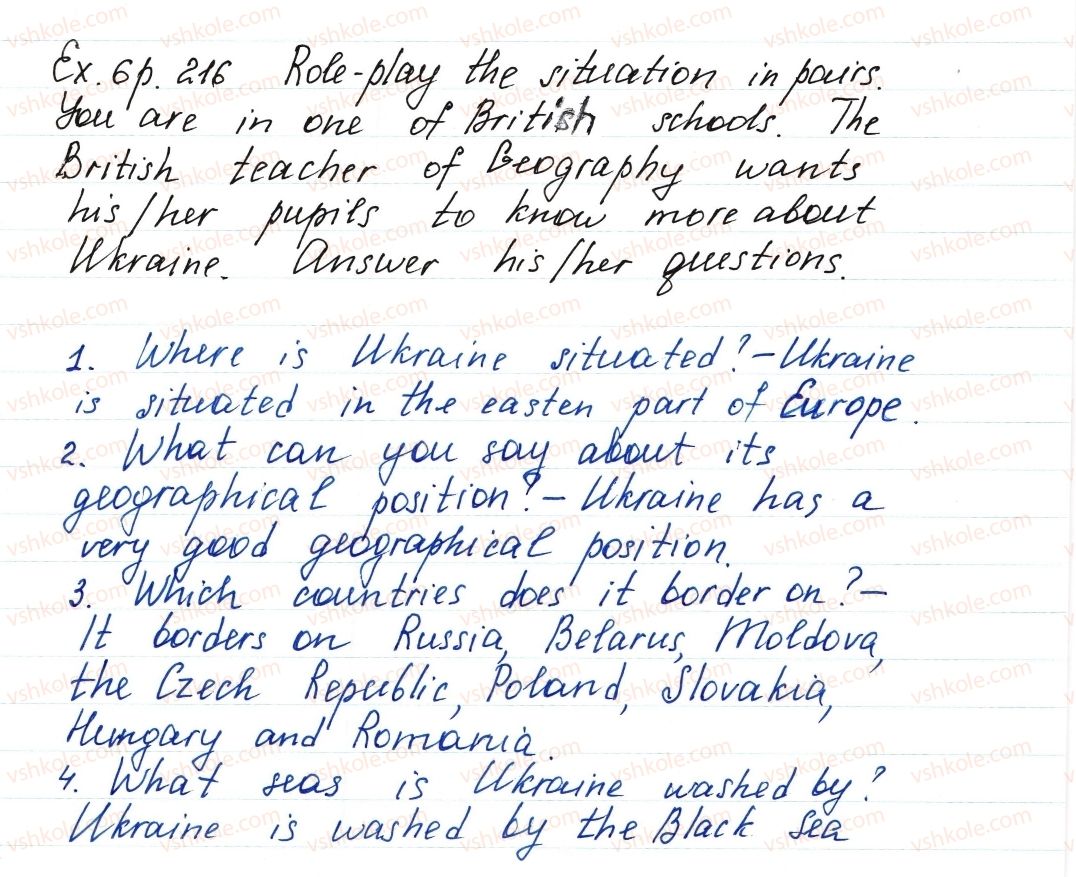 Ex. 6 p. 216 Role-play the situation in pairs.
You are in one of British schools. The
British teacher of Geography wants
his/her pupils to know more about
Ukraine. Answer his/her questions.
1. Where is Ukraine situated? – Ukraine
is situated in the easten part of Europe.
2. What can you say about its
geographical position? – Ukraine has a
very good geographical position.
3. Which countries does it border on? –
It borders on Russia, Belarus, Moldova,
the Czech Republic, Poland, Slovakia,
Hungary and Romania.
4. What seas is Ukraine washed by?
Ukraine is washed by the Black Sea
vshkole.com